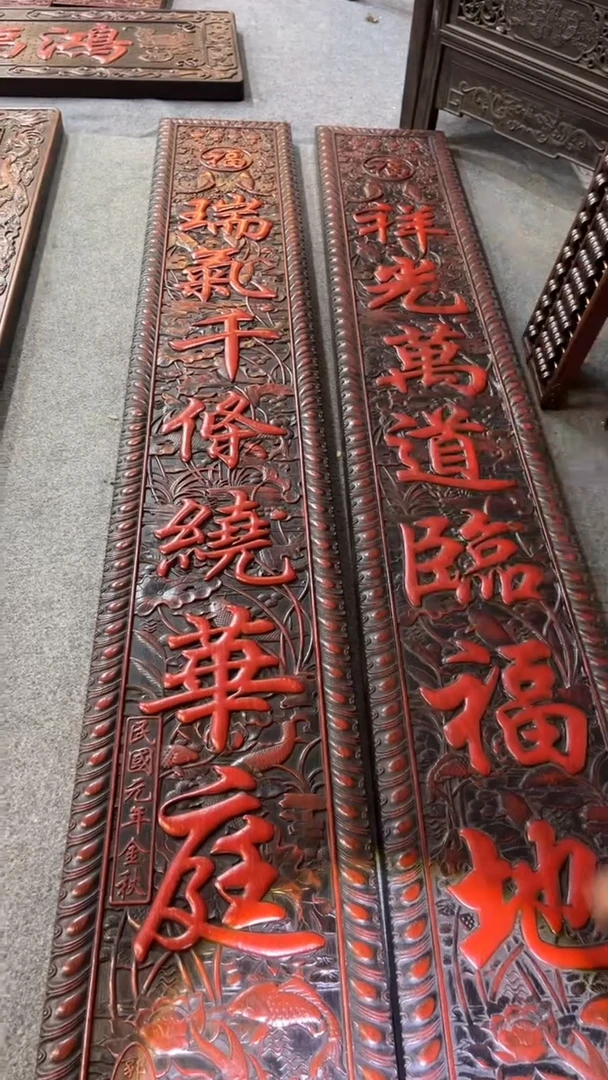 福
祥光萬道臨福地
福
瑞氣千條繞華庭
民國元年金秋
鴻